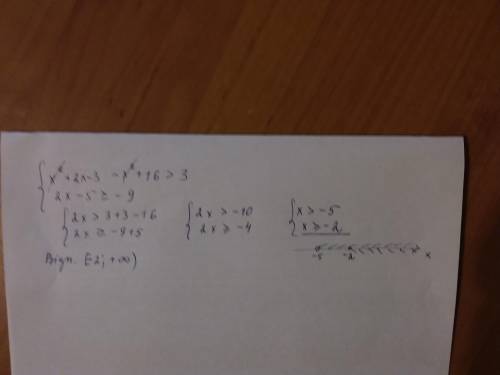 x² + 2x - 3 - x² + 16 > 3
2x - 5 ≥ - 9
2x > 3 + 3 - 16 2x > - 10 x > - 5
2x ≥ - 9 + 5 2x ≥ - 4 x ≥ - 2
-5 -2 x
Відп. [-2; +∞)